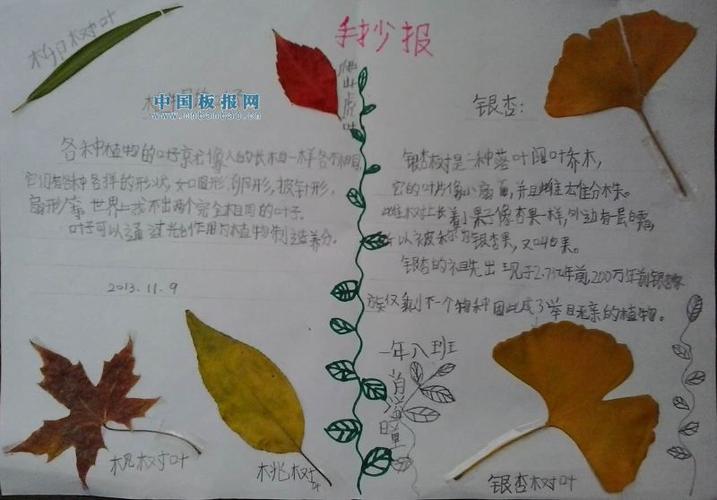 手抄报
柳树叶
爬山虎叶
中国板报网
www.cnbanbao.cn
各种植物的叶子就像人的长相一样各不相同,
它们有各种各样的形状,如圆形,卵形,披针形,
扇形等,世界上找不出两个完全相同的叶子.
叶子可以通过光合作用为植物制造养分.
2013.11.9
枫树叶
桃树叶
银杏:
银杏树是一种落叶阔叶乔木,
它的叶片像小扇面,并且雌雄分株。
雌树上长着小果子像杏果一样,外边有层白霜,
所以被称为银杏果,又叫白果。
银杏的祖先出现于2.7亿年前,200万年前银杏家
族仅剩下一个物种因此成了举目无亲的植物。
一年八班
银杏树叶